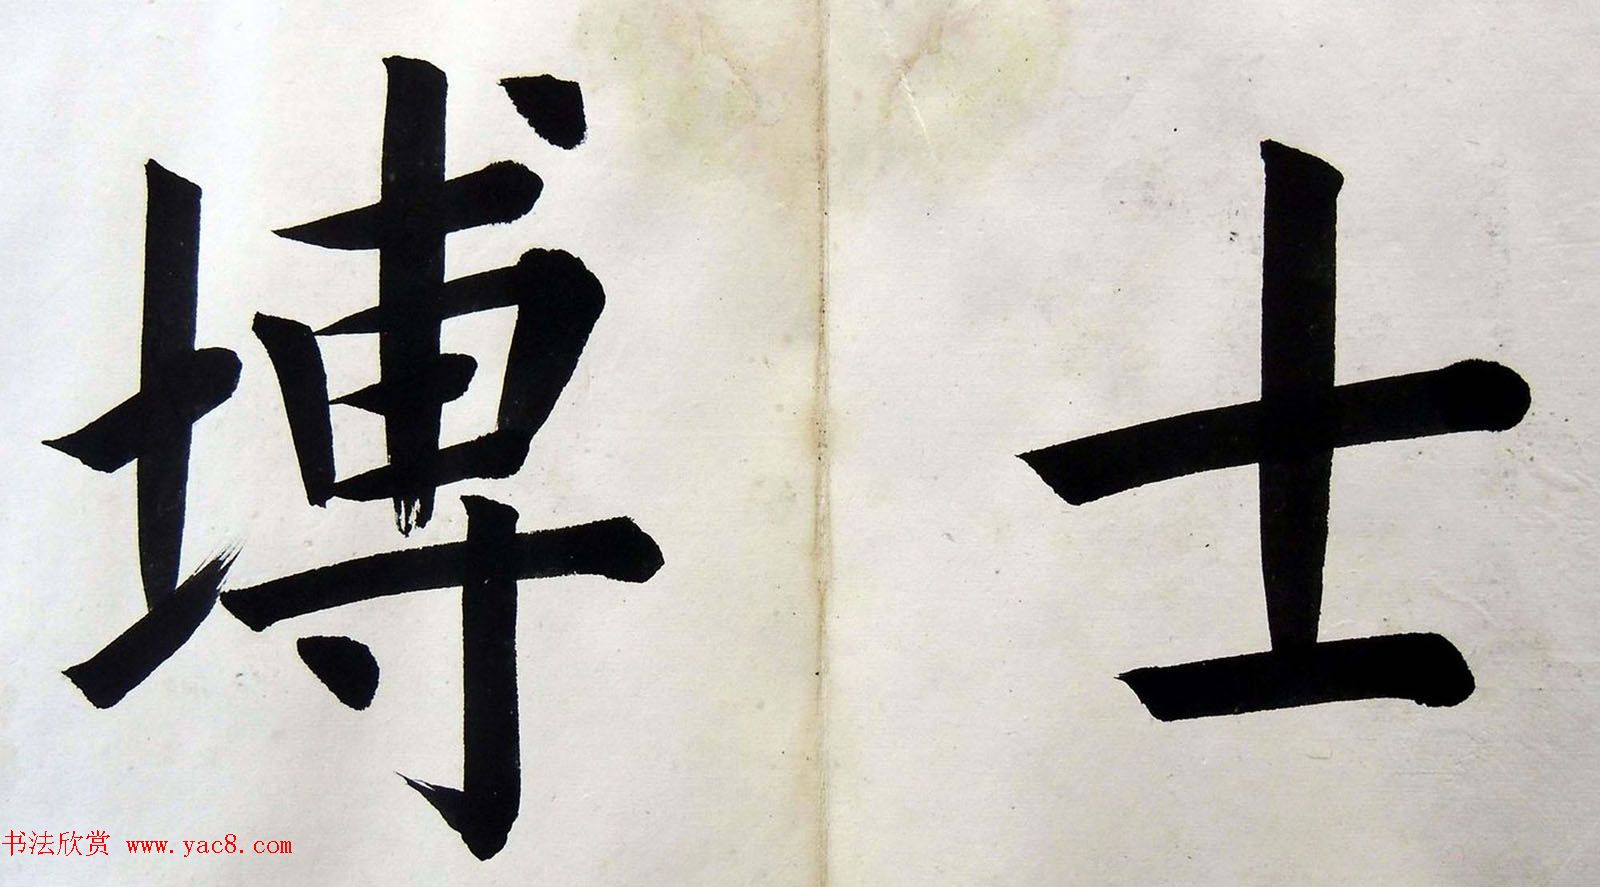 博士
书法欣赏 www.yac8.com